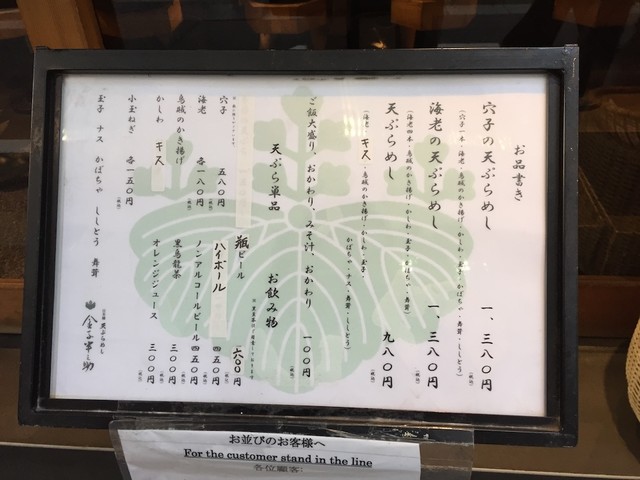 お品書き
穴子の天ぷらめし 一、三八〇円（税込）
（穴子一本・海老・烏賊のかき揚げ・かしわ・玉子・かぼちゃ・舞茸・ししとう）
海老の天ぷらめし 一、三八〇円（税込）
（海老四本・烏賊のかき揚げ・かしわ・玉子・かぼちゃ・舞茸・ししとう）
天ぷらめし 九八〇円（税込）
（海老・キス・烏賊のかき揚げ・かしわ・玉子・
かぼちゃ・ナス・舞茸・ししとう）
ご飯大盛り、おかわり、みそ汁、おかわり 一〇〇円（税込）
天ぷら単品
穴子 五八〇円（税込）
海老 各一八〇円（税込）
烏賊のかき揚げ
かしわ キス
小玉ねぎ 各一五〇円（税込）
玉子 ナス かぼちゃ ししとう 舞茸
お飲み物
瓶ビール 六〇〇円（税込）
ハイボール 四五〇円（税込）
ノンアルコールビール 四五〇円（税込）
黒烏龍茶 三〇〇円（税込）
オレンジジュース 三〇〇円（税込）
天ぷらめし
金子半之助
お並びのお客様へ
For the customer stand in the line
各位顧客: